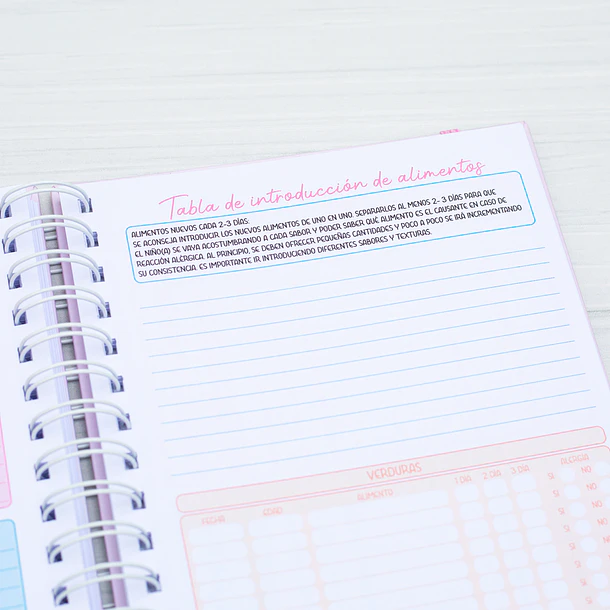 Tabla de introducción de alimentos
ALIMENTOS NUEVOS CADA 2-3 DÍAS:
SE ACONSEJA INTRODUCIR LOS NUEVOS ALIMENTOS DE UNO EN UNO, SEPARARLOS AL MENOS 2- 3 DÍAS PARA QUE
EL NIÑO(A) SE VAYA ACOSTUMBRANDO A CADA SABOR Y PODER SABER QUÉ ALIMENTO ES EL CAUSANTE EN CASO DE
REACCIÓN ALÉRGICA. AL PRINCIPIO, SE DEBEN OFRECER PEQUEÑAS CANTIDADES Y POCO A POCO SE IRÁ INCREMENTANDO
SU CONSISTENCIA. ES IMPORTANTE IR INTRODUCIENDO DIFERENTES SABORES Y TEXTURAS.
VERDURAS
FECHA ALIMENTO 1 DÍA 2 DÍA 3 DÍA ALERGIA
SI NO
SI NO
SI NO
SI NO
SI NO